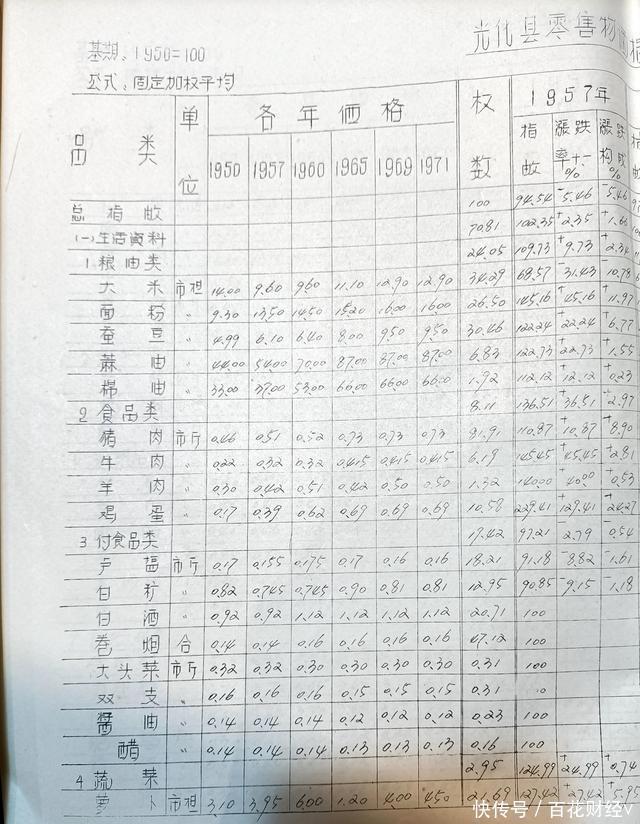 光化县零售物
基期:1950=100
公式:固定加权平均
品类 单位 各年価格 权数 1957年
1950 1957 1960 1965 1969 1971 指数 漲跌率+-% 漲跌构成%
总指数 100 94.54 -5.46 -5.46
(一)生活資料 70.81 102.35 +2.35
1 粮油类 24.05 109.73 +9.73
大米 市担 14.00 9.60 9.60 11.10 12.90 12.90 34.29 68.57 31.43 -10.78
面粉 〃 9.30 13.50 14.50 15.20 16.00 16.00 26.50 145.16 +45.16 +11.97
蚕豆 〃 4.99 6.10 6.40 8.00 9.50 9.50 30.46 122.24 +22.24 +6.77
蔴油 〃 44.00 54.00 70.00 87.00 87.00 87.00 6.83 122.73 +22.73 +1.55
棉油 〃 33.00 37.00 53.00 66.00 66.00 66.00 1.92 112.12 +12.12 +0.23
2 食品类 8.11 136.51 +36.51 +2.97
猪肉 市斤 0.46 0.51 0.52 0.73 0.73 0.73 81.91 110.87 +10.87 +8.90
牛肉 〃 0.22 0.32 0.32 0.415 0.415 0.415 6.19 145.45 +45.45 +2.81
羊肉 〃 0.30 0.42 0.51 0.42 0.50 0.50 1.32 140.00 +40.00 +0.53
鸡蛋 〃 0.17 0.39 0.62 0.69 0.69 0.69 10.58 229.41 +129.41
3 付食品类 19.42 97.21 -2.79 -0.54
卢塩 市斤 0.17 0.155 0.175 0.17 0.16 0.16 18.21 91.18 -8.82 -1.61
白糖 〃 0.82 0.745 0.745 0.90 0.81 0.81 12.95 90.85 -9.15 -1.18
白酒 〃 0.92 0.92 1.12 1.12 1.12 1.12 20.71 100
卷烟 合 0.14 0.14 0.16 0.16 0.16 0.16 47.12 100
大头菜 市斤 0.32 0.32 0.30 0.30 0.30 0.30 0.31 100
双支 〃 0.16 0.16 0.16 0.15 0.15 0.15 0.31
醬油 〃 0.14 0.14 0.14 0.12 0.12 0.12 0.23 100
醋 〃 0.14 0.14 0.14 0.13 0.13 0.13 0.16 100
4 蔬菜 2.95 124.99 +24.99 +0.74
萝卜 市担 3.10 3.95 6.00 1.20 4.00 4.50 21.69 127.42 +27.42 +5.95
快传号/百花财经v